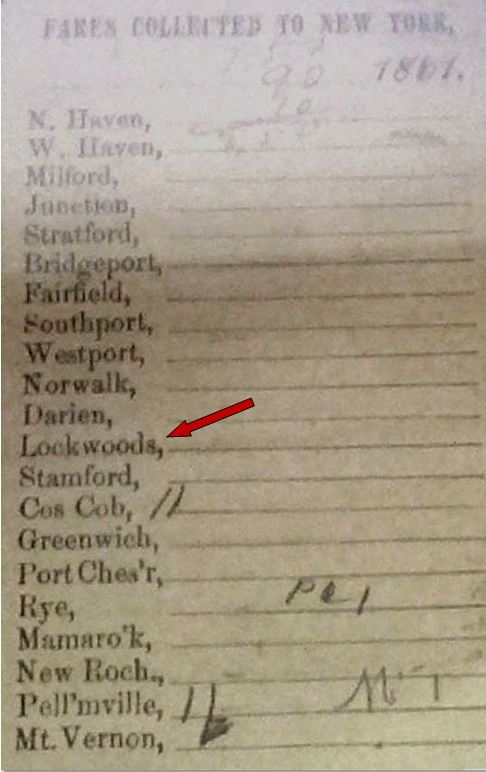 FARES COLLECTED TO NEW YORK,
90 1861.
N. Haven,
W. Haven,
Milford,
Junction,
Stratford,
Bridgeport,
Fairfield,
Southport,
Westport,
Norwalk,
Darien,
Lockwoods,
Stamford,
Cos Cob, 11
Greenwich,
Port Ches'r,
Rye,
Mamaro'k,
New Roch.,
Pell'mville, 11
Mt. Vernon,